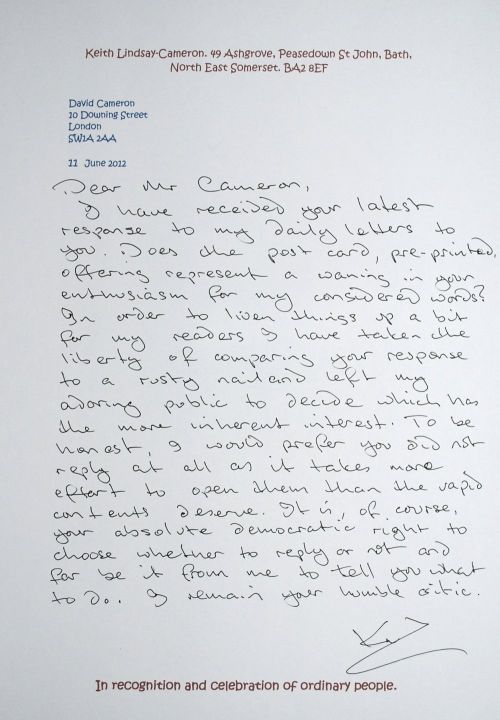 Keith Lindsay-Cameron. 49 Ashgrove, Peasedown St John, Bath,
North East Somerset. BA2 8EF
David Cameron
10 Downing Street
London
SW1A 2AA
11 June 2012
Dear Mr Cameron,
I have received your latest
response to my daily letters to
you. Does the post card, pre-printed,
offering represent a waning in your
enthusiasm for my considered words?
In order to liven things up a bit
for my readers I have taken the
liberty of comparing your response
to a rusty nail and left my
adoring public to decide which has
the more inherent interest. To be
honest, I would prefer you did not
reply at all as it takes more
effort to open them than the vapid
contents deserve. It is, of course,
your absolute democratic right to
choose whether to reply or not and
far be it from me to tell you what
to do. I remain your humble critic.
In recognition and celebration of ordinary people.